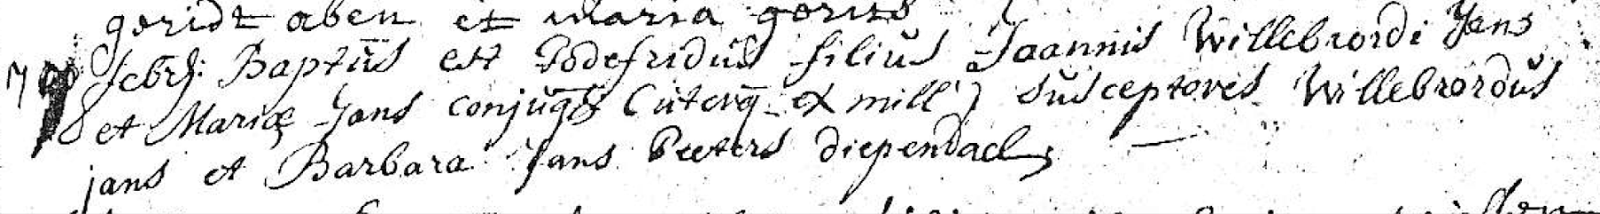 geridt aben et maria gorits
7 febrj: Baptus est Godefridus filius Joannis Willebrordi Jans
et Mariæ Jans conjugū (uterq ex mill) susceptores Willebrordus
jans et Barbara Jans Peeters diependael,